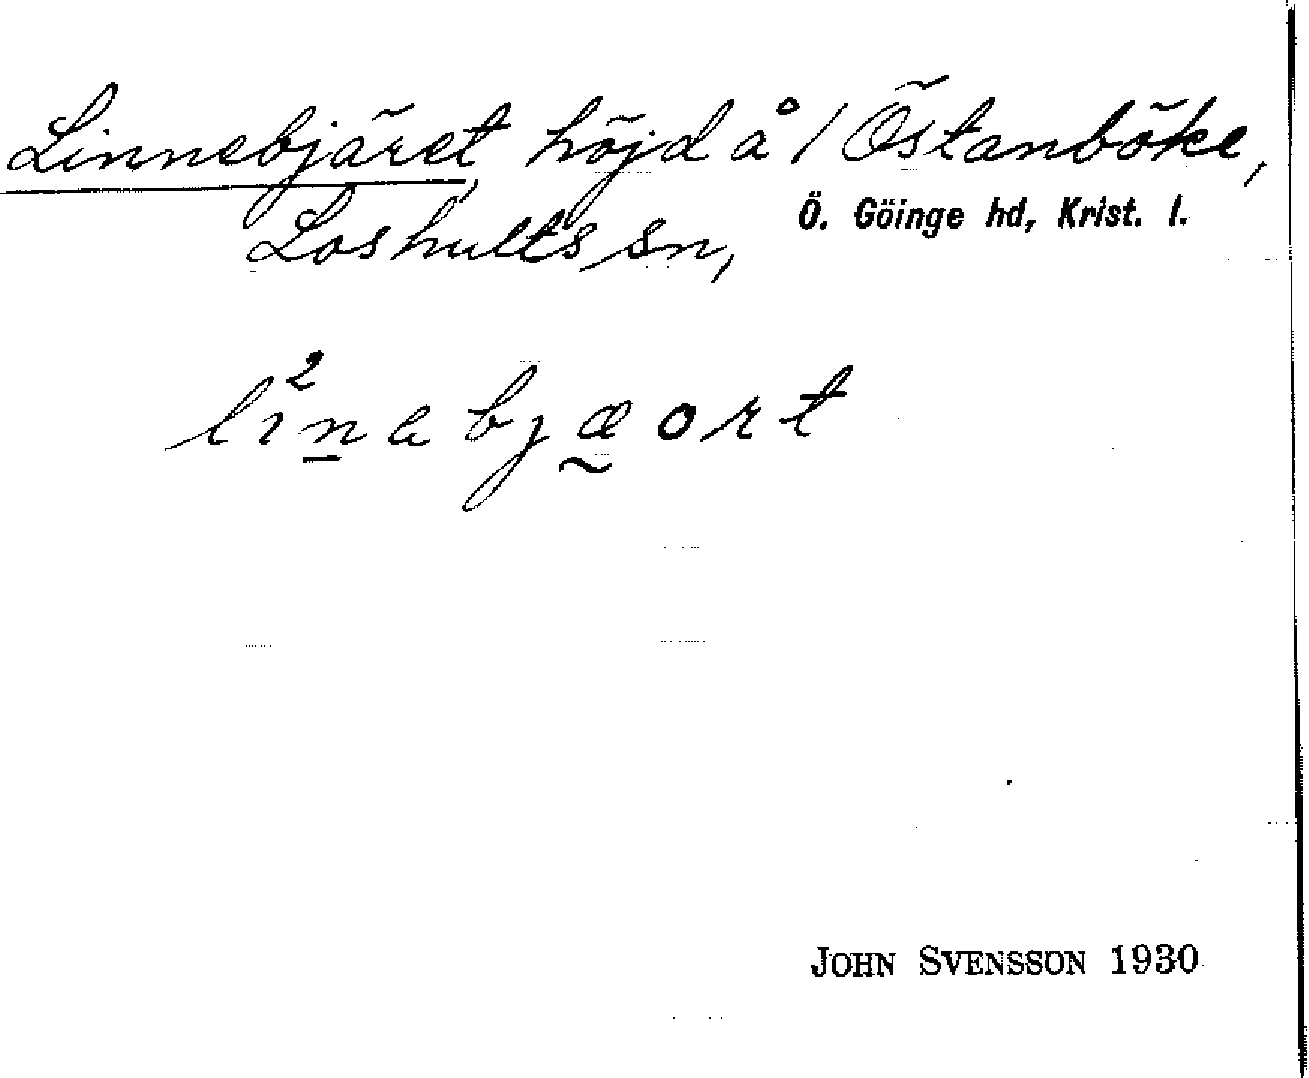 Linnebjäret höjd å 1 Östanböke,
Loshults sn, Ö. Göinge hd, Krist. l.
li²nabjæort
JOHN SVENSSON 1930